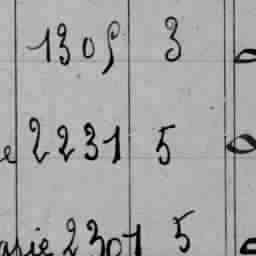 1309 3
e 2231 5
asie 2301 5